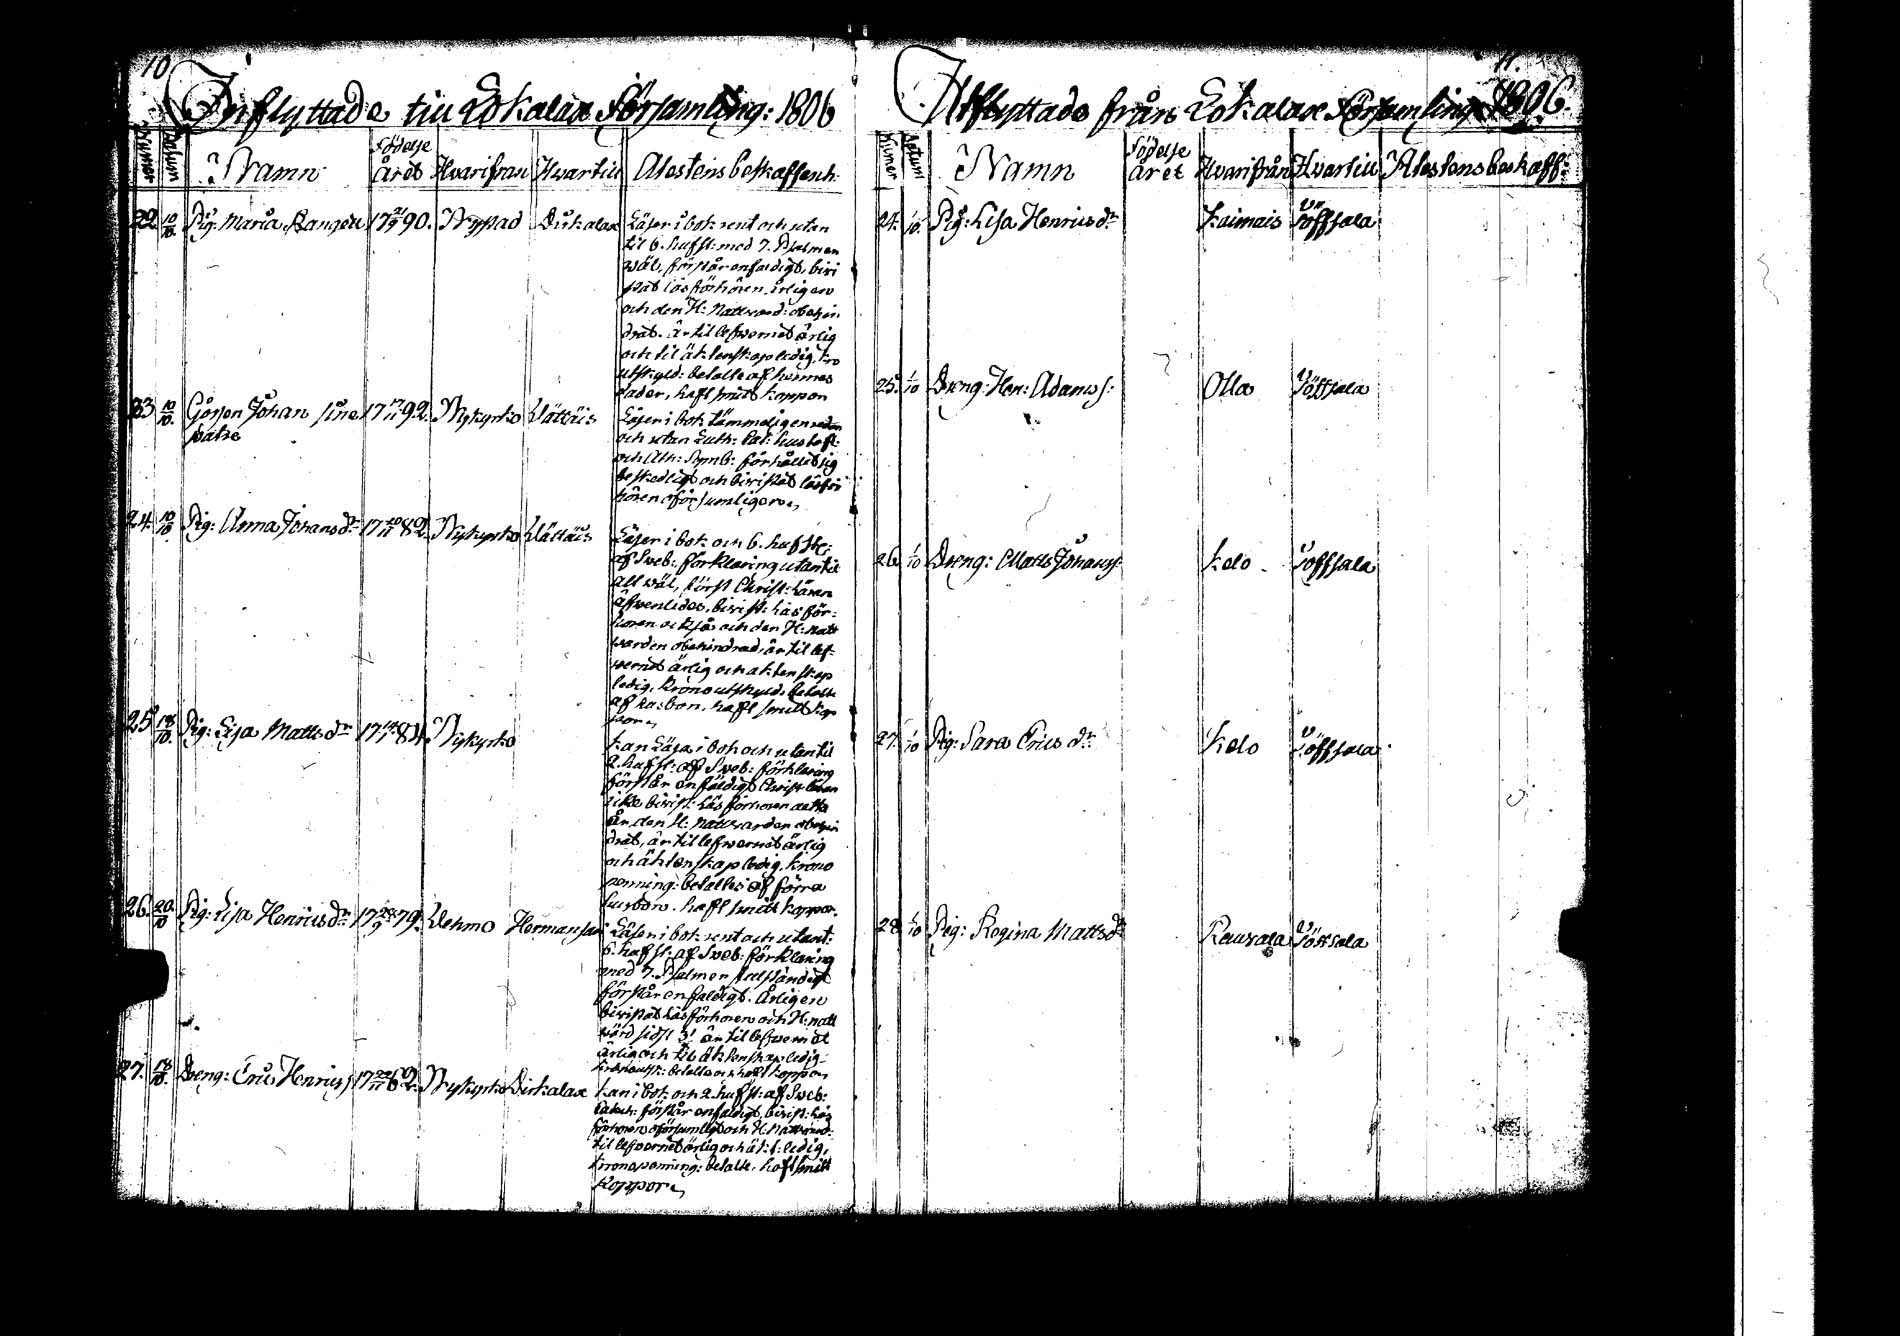 10
Inflyttade till Lokalax Församling: 1806
Numer Datum Namn Födelse året Hvarifran Hwartill Atestens beskaffenh:
22. 10/10. Pig: Maria Rangell 17 21/9 90. Nystad Dirkalax
Läser i bok rent och utan
til 6. hufst: med 7. Psalmen
wäl, förstår enfaldigt, bivi
stat läsförhören årligen
och den H: Nattward: obehin
drat. är til lefwernet ärlig
och til äktenskap ledig, kro
utskyld: betalte af hennes
fader, haft smitt koppor
23 10/10. Gossen Johan
17 92. Nykyrko Wättäis
Läser i bok tämmeligen
och utan Luth: Cat: hustafl:
och Ath: Symb: förhållit sig
beskedligt och bivistat läsför
hören oförsumligen
24. 10/10 Pig: Anna Johans dr 17 82. Nykyrko Wättäis
Läser i bok och 6. hufst:
af Sweb: förklaring utantil
all wäl, först Christ: Läran
äfwenledes, bivist: läsför-
hören också och den H: natt
warden obehindrad, är til lef-
wernet ärlig och aktenskap
ledig, Krono utskyld: betalte
af husbon. haft smitt kop
por
25 18/10. Pig: Lisa Matts dr 17 84. Nykyrko
kan Läsa i bok och utan til
2. hufst: af Sweb: förklaring
förstår enfäldigt Christ läran
icke bivist: Läsförhören detta
år, den H: Nattwarden obehin
drat, är til lefwernet ärlig
och äktenskap ledig, Krono
penning: betaltes af förra
husbon. haft smitt koppor.
26. 20/10 Pig: Lisa Henrics dr 17 79. Wehmo Hermansari
Läser i bok rent och utant:
6. hufst: af Sweb: förklaring
med 7. Psalmen fulständigt
förstår enfaldigt. Årligen
bivistat Läsförhören och H: natt
wärd sidst är til lefwernet
ärlig och til äktenskap ledig
kronoutsk: betalte och haft koppor
27. 18/10. Dreng: Eric Henricss 17 82. Nykyrko Dirkalax
kan i bok och 2. hufst: af Sweb:
Catech: förstår enfaldigt, bivist: läs
förhören oförsumligt och H. Nattward:
til lefwernet ärlig och äkt: ledig,
kronopenning: betalte, haft smitt
koppor
11.
Utflyttade från Lokalax Församling 1806.
Numer Datum Namn Födelse året Hvarifrån Hvartill Atestens beskaff:
24. 1/10. Pig: Lisa Henrics dr Kaimais Töffsala
25. 1/10 Dreng: Hen: Adamss: Olla Töffsala
26. 1/10 Dreng: Matts Johanss: Kelo Töffsala
27. 1/10 Pig: Sara Erics dr Kelo Töffsala
28 1/10 Pig: Regina Matts dr Rausala Töffsala